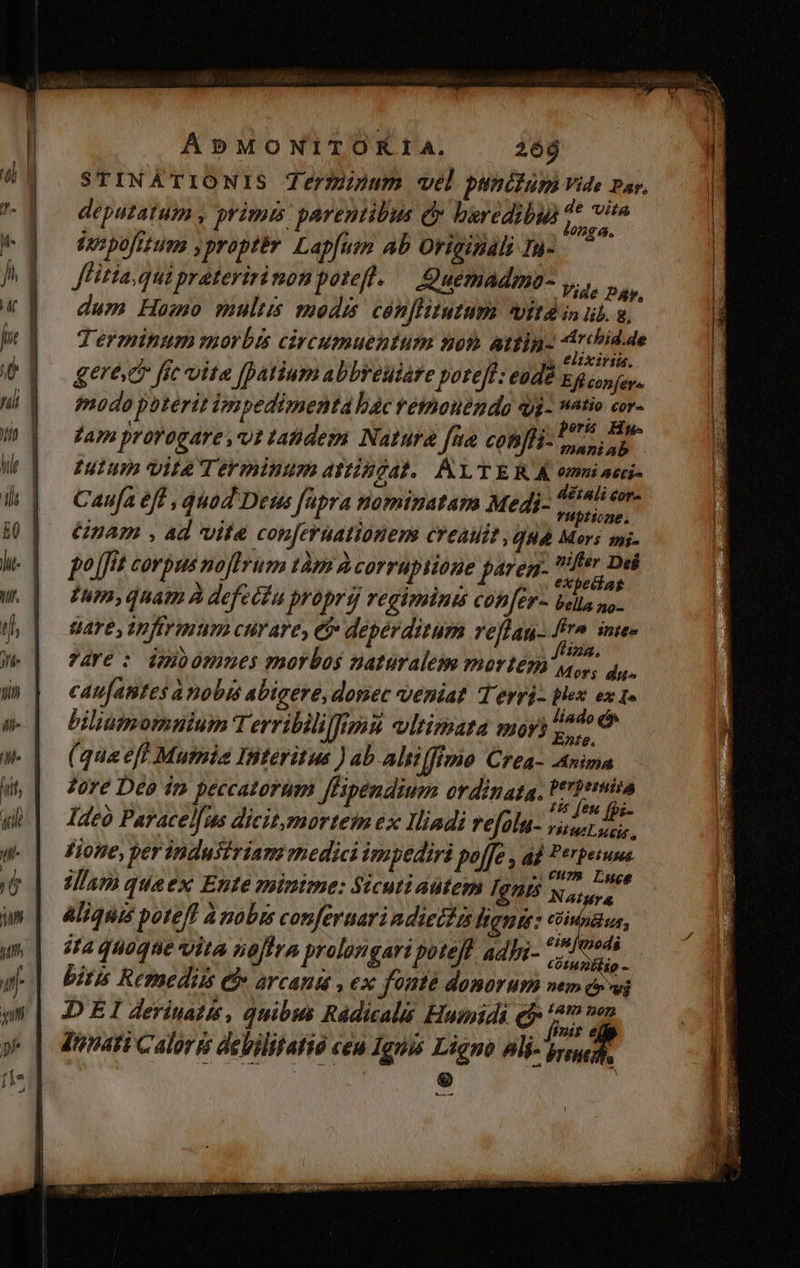 ADMONITORIA. 269
STINATIONIS Terminum vel punctum
deputatum, primis parentibus & hæredibus
impositum, propter Lapsum ab Originali Iu-
stitia, qui præteriri non potest. Quemadmo-
dum Homo multis modis constitutum vitæ
Terminum morbis circumuentum non attin-
gere, & sic vitæ spatium abbreuiare potest: eodē
modo poterit impedimenta hac remouendo vi-
tam prorogare, vt tandem Naturæ suæ consti-
tutum vitæ Terminum attingat. ALTERA
Causa est, quod Deus supra nominatam Medi-
cinam, ad vitæ conseruationem creauit, quæ
possit corpus nostrum tàm à corruptione paren-
tum, quam à defectu proprij regiminis conser-
uare, infirmum curare, & deperditum restau-
rare: imò omnes morbos naturalem mortem
causantes à nobis abigere, donec veniat Terri-
biliumomnium Terribilissimū vltimata mors
(quæ est Mumiæ Interitus) ab altissimo Crea-
tore Deo in peccatorum stipendium ordinata.
Ideò Paracelsus dicit, mortem ex Iliadi resolu-
tione, per industriam medici impediri posse, at
illam quæ ex Ente minime: Sicuti autem Ignis
aliquis potest à nobis conseruari adiectis lignis:
ita quoque vita nostra prolongari potest adhi-
bitis Remediis & arcanis, ex fonte donorum
DEI deriuatis, quibus Radicalis Humidi &
Innati Caloris debilitatio ceu Ignis Ligno ali-
Vide Par.
de vita
longa.
Vide Par.
in lib. 8.
Archid. de
elixiriis.
Est conser-
uatio cor-
poris Hu-
mani ab
omni acci-
dētali cor-
ruptione.
Mors mi-
nister Dei
expectat
bella no-
stra intes-
tina.
Mors du-
plex ex I-
liado &
Ente.
Anima
perpetuita
tis seu spi-
ritus Lucis,
Perpetuus
cum Luce
Natura
cōiunctus,
eiusmodi
cōiunctio-
nem & vi
tam non
finit esse
breuem.